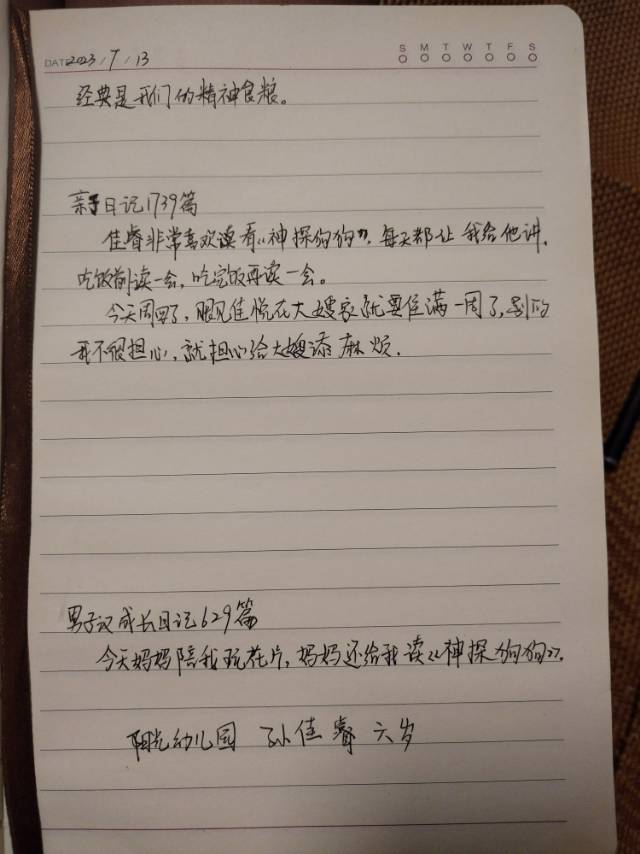 DATE 2023/7/13
S M T W T F S
经典是我们的精神食粮。
亲子日记1739篇
佳睿非常喜欢读看《神探狗狗》，每天都让我给他讲．
吃饭前读一会，吃完饭再读一会。
今天周四了，眼见佳悦在大嫂家就要住满一周了，别的
我不很担心，就担心给大嫂添麻烦．
男子汉成长日记629篇
今天妈妈陪我玩花片，妈妈还给我读《神探狗狗》．
阳光幼儿园 孙佳睿 六岁